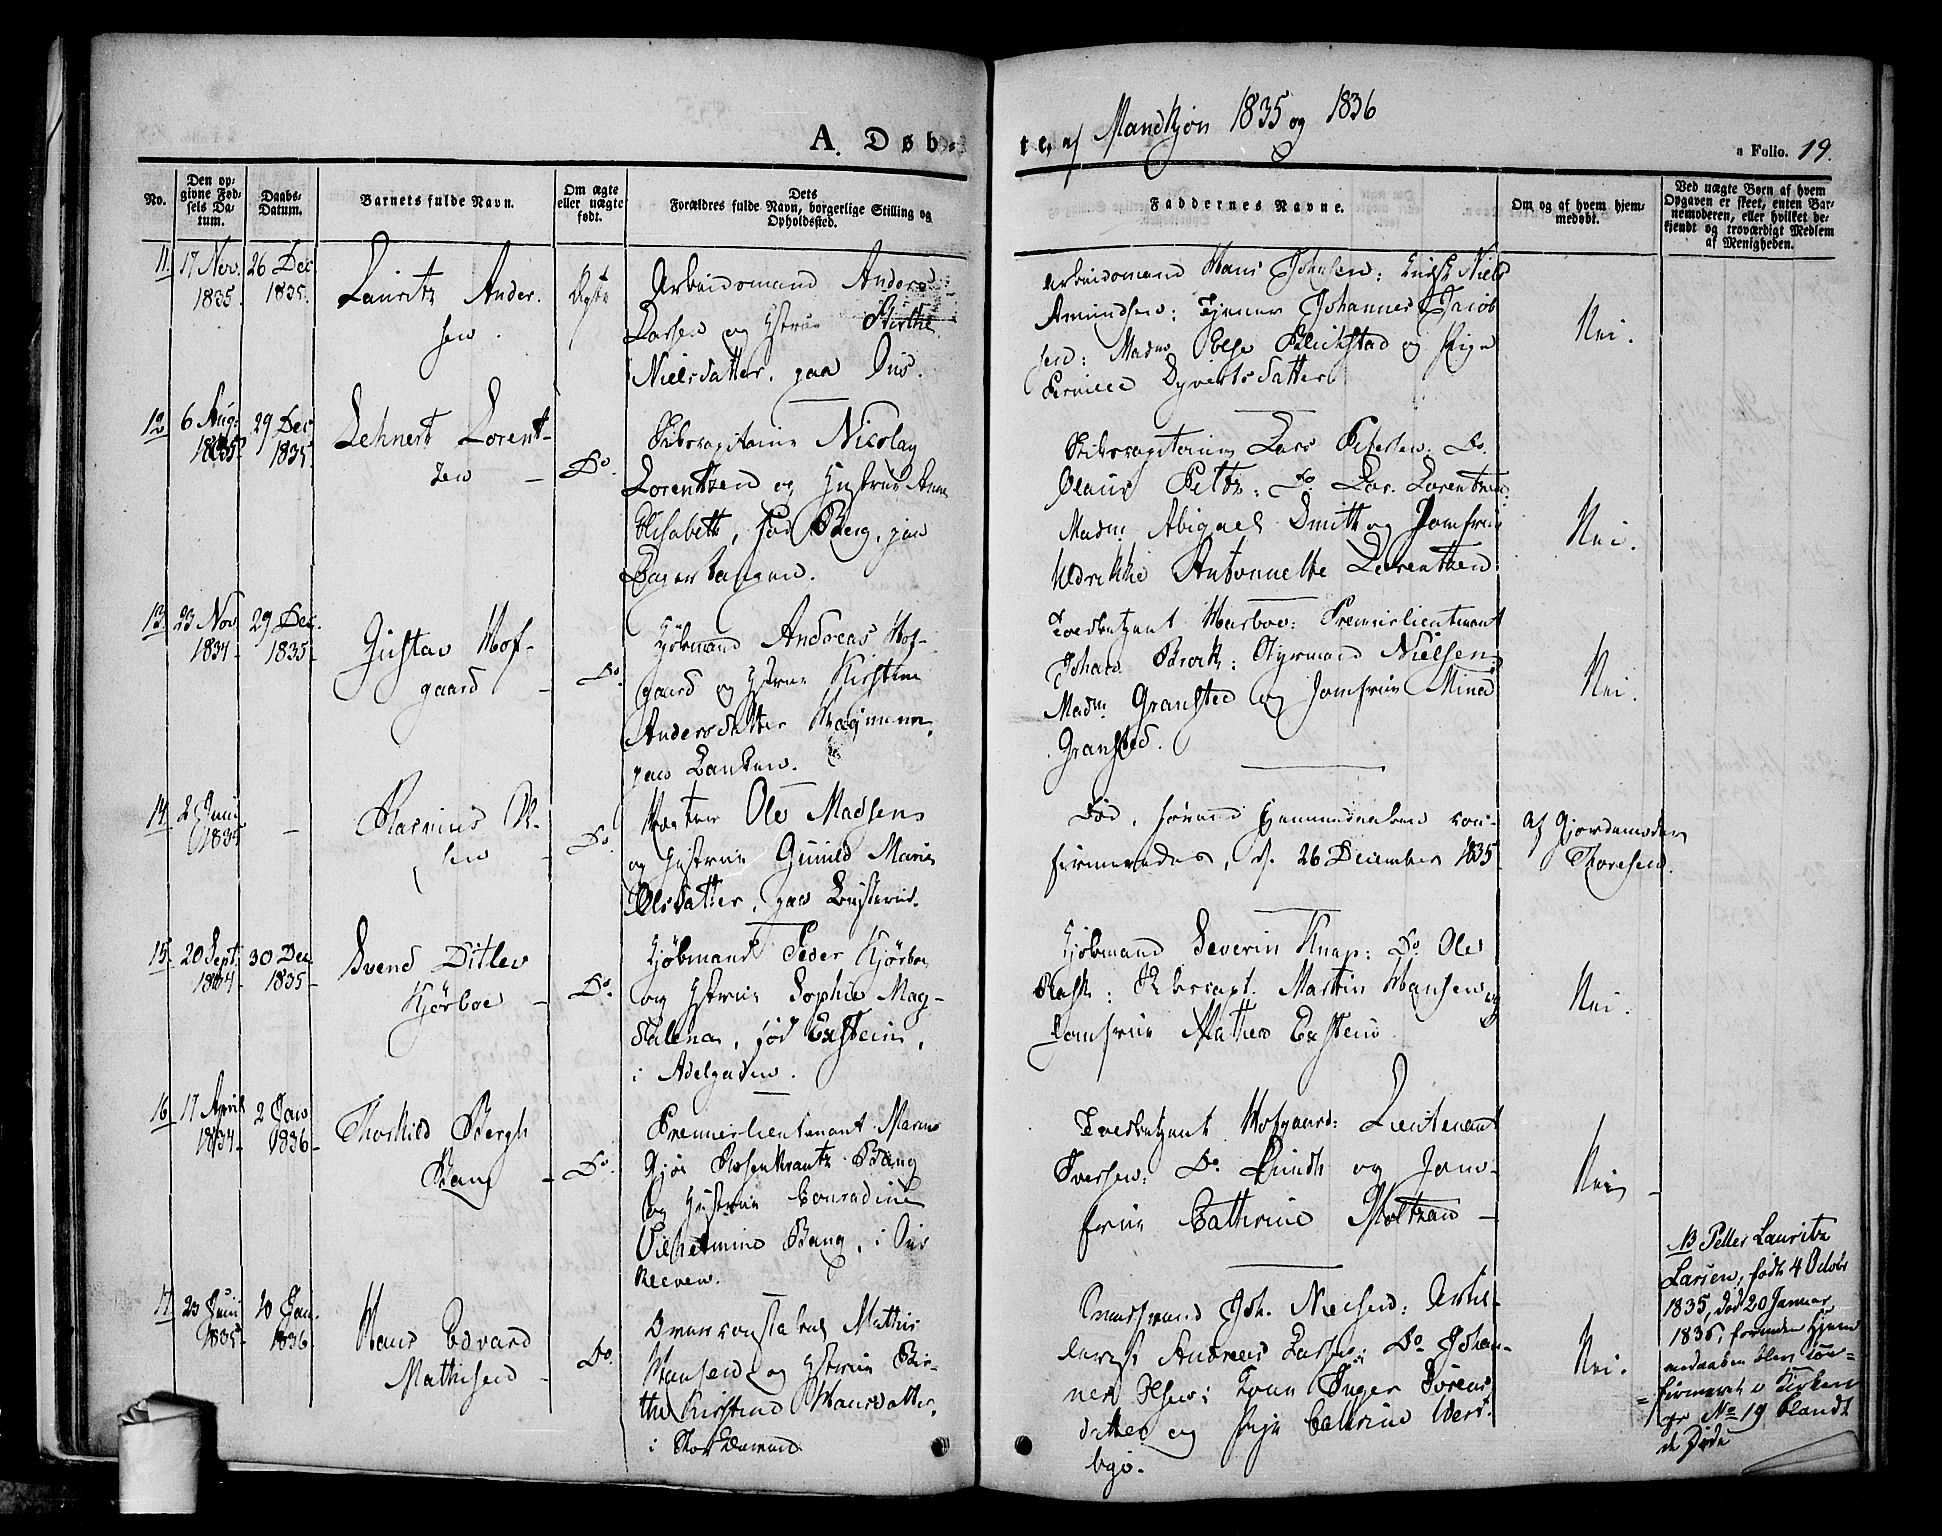 A. Døb-
te, af Mandkjøn 1835 og 1836
Folio. 19.
No.
Den op-
givne Fød-
sels Da-
tum.
Daabs-
Datum.
Barnets fulde Navn.
Om ægte
eller uægte
født.
Dets
Forældres fulde Navn, borgerlige Stilling og
Opholdssted.
Faddernes Navne.
Om og af hvem hjem-
medøbt.
Ved uægte Børn af hvem
Opgaven er skeet, enten Bar-
nemoderen, eller hvilket be-
kjendt og troværdigt Medlem
af Menigheden.
11. 17 Nov. 26 Dec
1835. 1835.
Lauritz Ander-
sen.
Ægte
Arbeidsmand Anders
Larsen og Hstrue Birthe
Nielsdatter, paa Øus.
Arbeidsmand Hans Johnsen: Niels
Amundsen: Tjener Johannes Jacob
sen: Madm Else og Pige
Pernille Dyvertsdatter
Nei.
12 6 Aug: 29 Dec
1835 1835.
Lehnert Lorent-
zen -
Do.
Skibscapitaine Nicolay
Lorentzen og Hustrue Anne
Elisabeth, fød Berg, paa
Skibscapitainerne Lars Petersen: Do.
Olaus Peltz: Do. Lar. Lorentzen
Madm. Abigael Smith og Jomfrue
Uldrikke Antonnette Lorentzen
Nei.
13. 23 Nov 29 Dec.
1834- 1835-
Gustav Hof-
gaard -
Do.
Kjøbmand Andreas Hof-
gaard og Hstrue Kirstine
Andersdatter
paa Tanken.
Toldbetjent Harboe: Premierlieutenant
Johan Brock: Styrmand Nielsen:
Madm. Gransted og Jomfrue Mina
Gransted.
Nei.
14. 2 Juni -
1835
Rasmus
sen -
Do.
Ole Madsen
og Hustrue Gunild Marie
Olsdatter, paa
Død, førend Hjemmedaaben con-
firmeredes, d. 26 December 1835
Af Gjordemoder
Thoresen.
15. 20 Sept. 30 Dec
1834- 1835-
Svend Ditlev
Kjørboe -
Do.
Kjøbmand Peder Kjørboe
og Hstrue Sophie Mag-
dalena, fød Exstein,
i Adelgaden.
Kjøbmand Severin Knap: Do. Ole
Rask: Skibscapt. Martin Hansen og
Jomfrue Mathea Exstein
Nei.
16. 17 April 2 Jan
1834- 1836-
Thorkild Bergh
Bang -
Do.
Premierlieutenant Marius
Gjøe Rosenkrantz Bang
og Hustrue Conradine
Vilhelmine Bang, i Øus
Toldbetjent Hofgaard: Lieutenant
Iversen: Do. Lundh og Jom-
frue Cathrine Moltzau -
Nei -
17. 23 Juni 10 Jan.
1835- 1836
Hans Edvard
Mathisen -
Do.
Mathis
Hansen og Hstrue Bir-
the Kirstine Hansdatter,
i
Joh. Nielsen: Artil-
lerist Andreas Larsen: Do Johan-
nes Olsen: Kone Inger Sørens
datter og Pige Cathrine Wers-
bye.
Nei.
NB Peller Lauritz
Larsen, født 4 Octobr
1835, død 20 Januar
1836, forinden Hjem
medaaben blev con-
firmeret i Kirken
No 19 blandt
de Døde